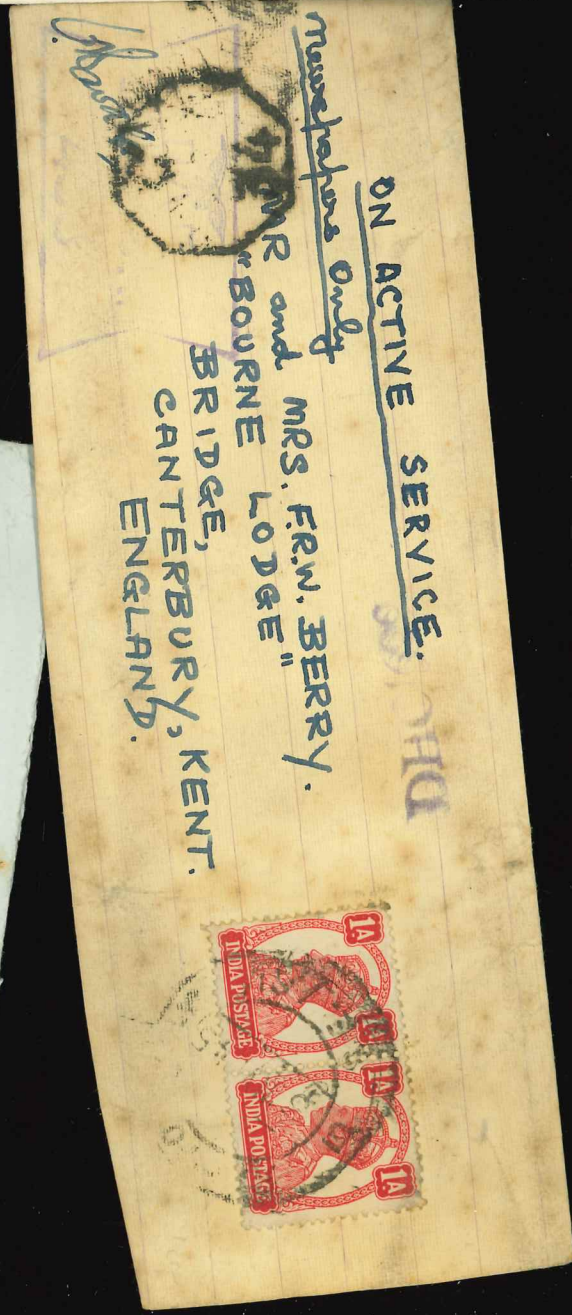 ON ACTIVE SERVICE.
Newspapers Only
MR and MRS. F.R.W. BERRY.
"BOURNE LODGE"
BRIDGE,
CANTERBURY, KENT.
ENGLAND.
1A 1A
INDIA POSTAGE
1A 1A
INDIA POSTAGE